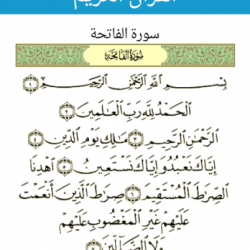 القرآن الكريم
سورة الفاتحة
سورة الفاتحة
بِسْمِ اللَّهِ الرَّحْمَٰنِ الرَّحِيمِ ١
الْحَمْدُ لِلَّهِ رَبِّ الْعَالَمِينَ ٢
الرَّحْمَٰنِ الرَّحِيمِ ٣ مَالِكِ يَوْمِ الدِّينِ ٤
إِيَّاكَ نَعْبُدُ وَإِيَّاكَ نَسْتَعِينُ ٥ اهْدِنَا
الصِّرَاطَ الْمُسْتَقِيمَ ٦ صِرَاطَ الَّذِينَ أَنْعَمْتَ
عَلَيْهِمْ غَيْرِ الْمَغْضُوبِ عَلَيْهِمْ
وَلَا الضَّالِّينَ ٧